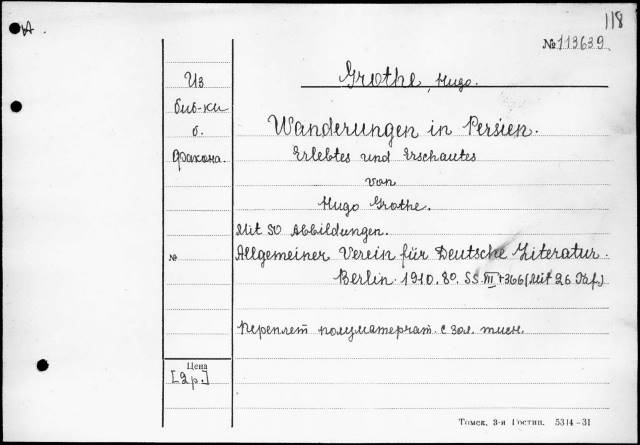 А.
118
№ 113639
Grothe, Hugo.
Из
биб-ки
б.
Фракона.
Wanderungen in Persien.
Erlebtes und Erschautes
von
Hugo Grothe.
Mit 80 Abbildungen.
№
Allgemeiner Verein für Deutsche Literatur.
Berlin. 1910. 80. SS. III+366 (Mit 26 Taf.)
Переплет полуматерчат. с зол. тисн.
Цена
[2р.]
Томск. 3-я Гостип. 5314-31